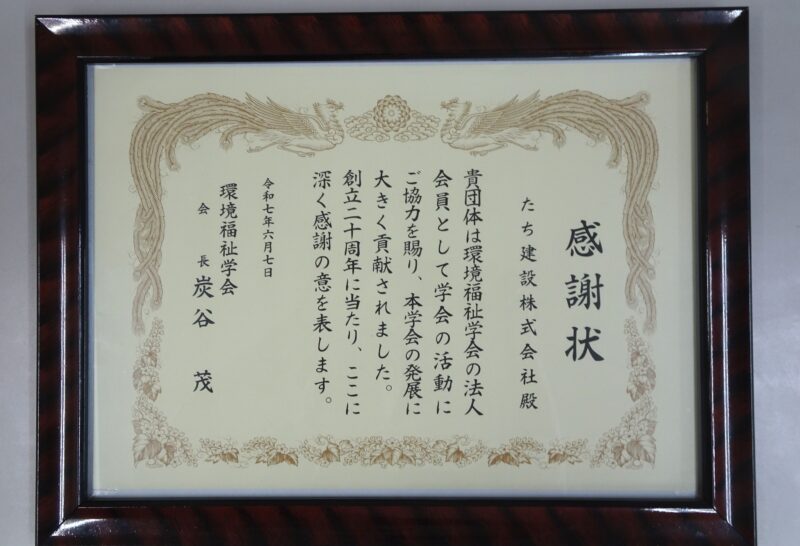 感謝状
たち建設株式会社殿
貴団体は環境福祉学会の法人
会員として学会の活動に
ご協力を賜り、本学会の発展に
大きく貢献されました。
創立二十周年に当たり、ここに
深く感謝の意を表します。
令和七年六月七日
環境福祉学会
会長 炭谷 茂